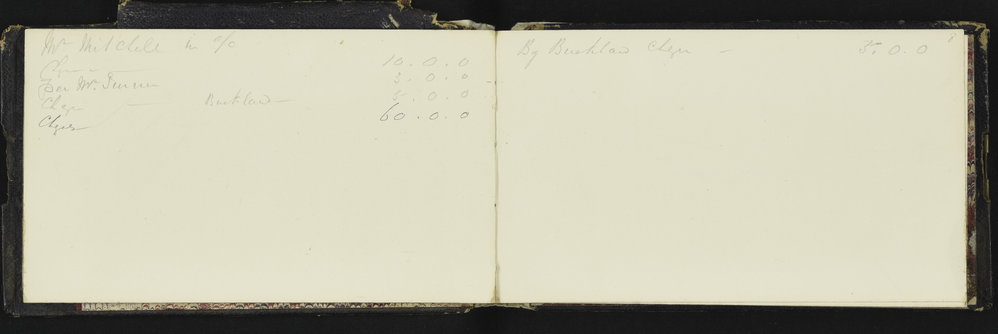 Mr Mitchell in a/c
Cheque — 10.0.0
For Mr. Turner 3.0.0
Chqe — Buckland — 5.0.0
Chques 60.0.0
By Buckland Chqe — 5.0.0